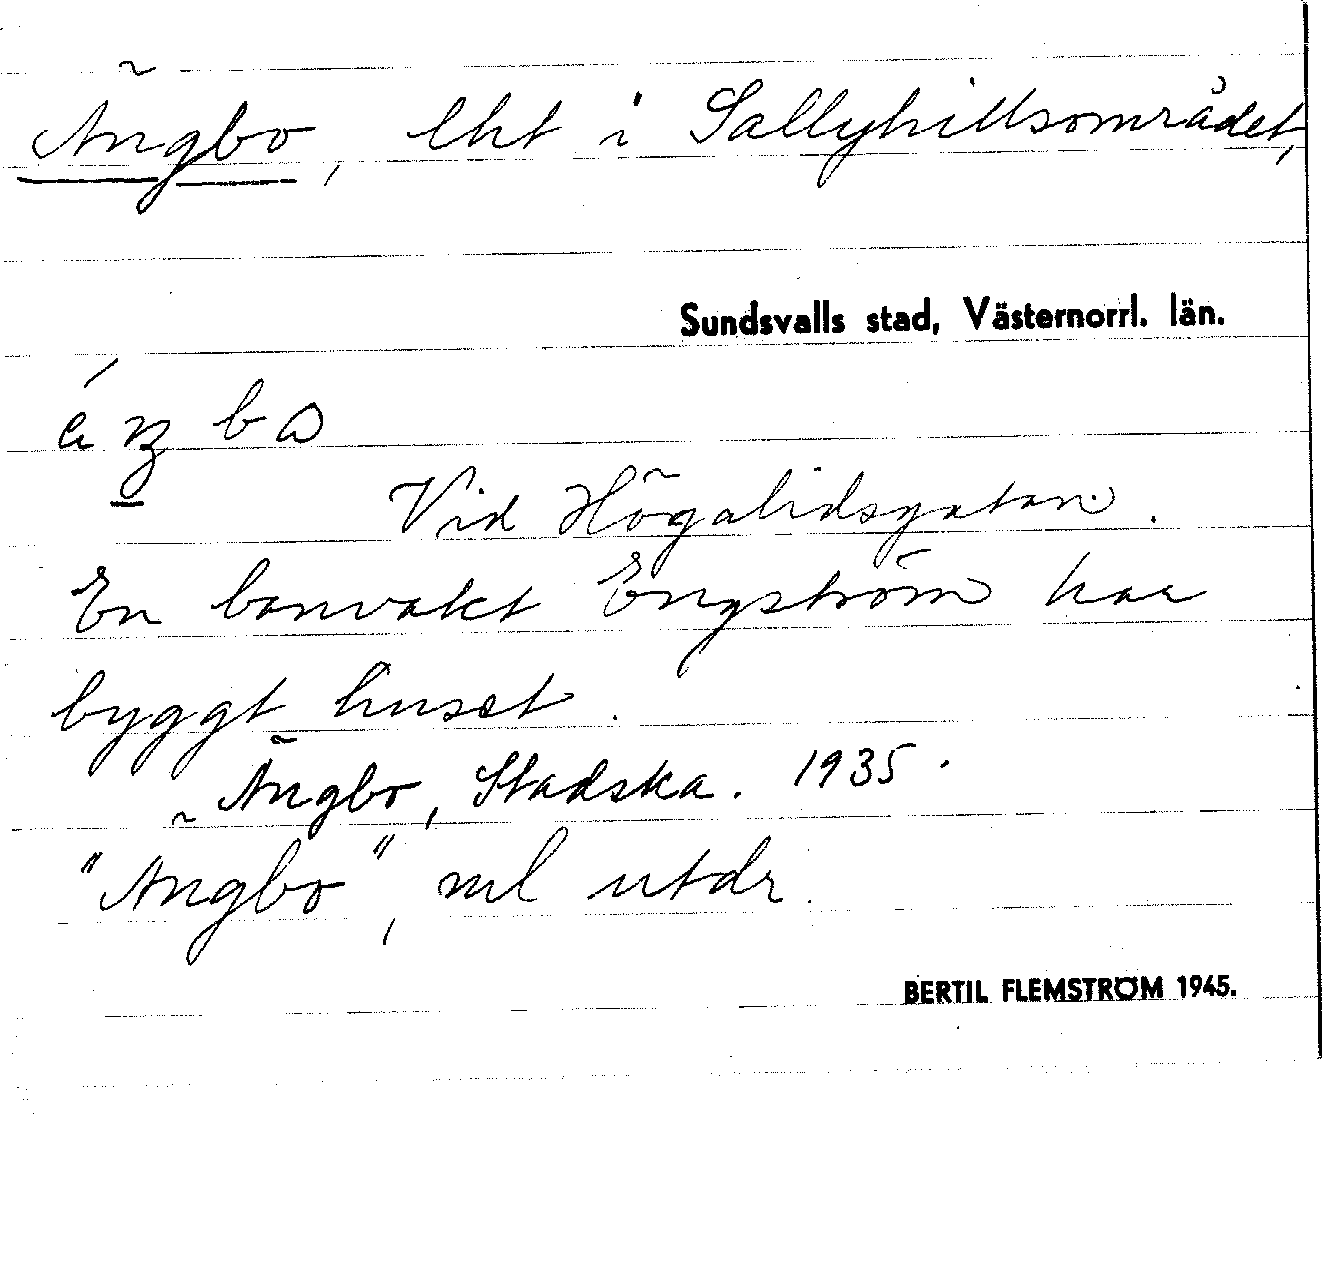 Ängbo, lht i Sallyhillsområdet,
Sundsvalls stad, Västernorrl. län.
Vid Högalidsgatan.
En banvakt Engström har
byggt huset.
Ängbo, Stadska. 1935.
"Ängbo", ml utdr.
BERTIL FLEMSTRÖM 1945.